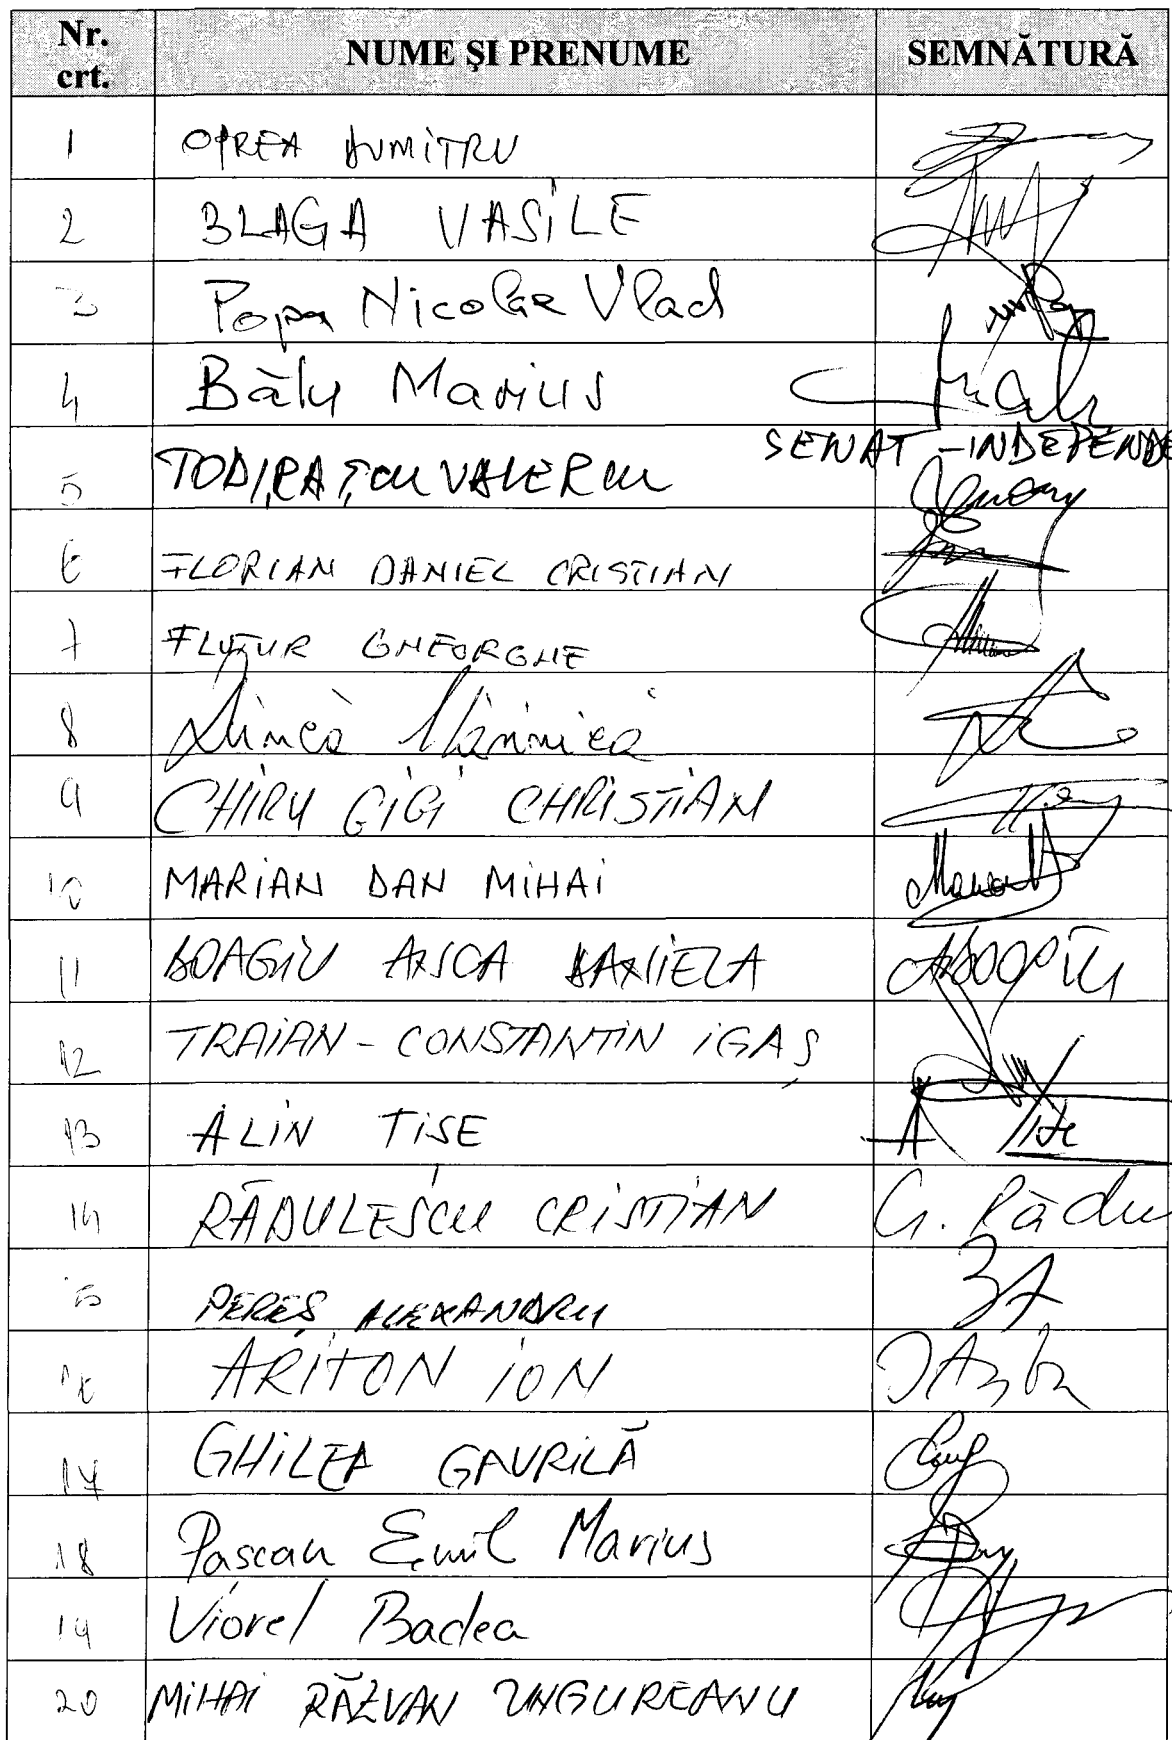 Nr. crt. NUME ȘI PRENUME SEMNĂTURĂ
1 OPREA DUMITRU
2 BLAGA VASILE
3 Popa Nicolae Vlad
4 Bălu Marius
SENAT - INDEPENDE
5 TODIRAȘCU VALERIU
6 FLORIAN DANIEL CRISTIAN
7 FLUTUR GHEORGHE
8 Mincă Mărinică
9 CHIRU GIGI CHRISTIAN
10 MARIAN DAN MIHAI
11 BOAGIU ANCA DANIELA
12 TRAIAN - CONSTANTIN IGAȘ
13 ALIN TIȘE A Tișe
14 RĂDULESCU CRISTIAN C. Rădu
15 PEREȘ ALEXANDRU
16 ARITON ION
17 GHILEA GAVRILĂ
18 Pașcan Emil Marius
19 Viorel Badea
20 MIHAI RĂZVAN UNGUREANU